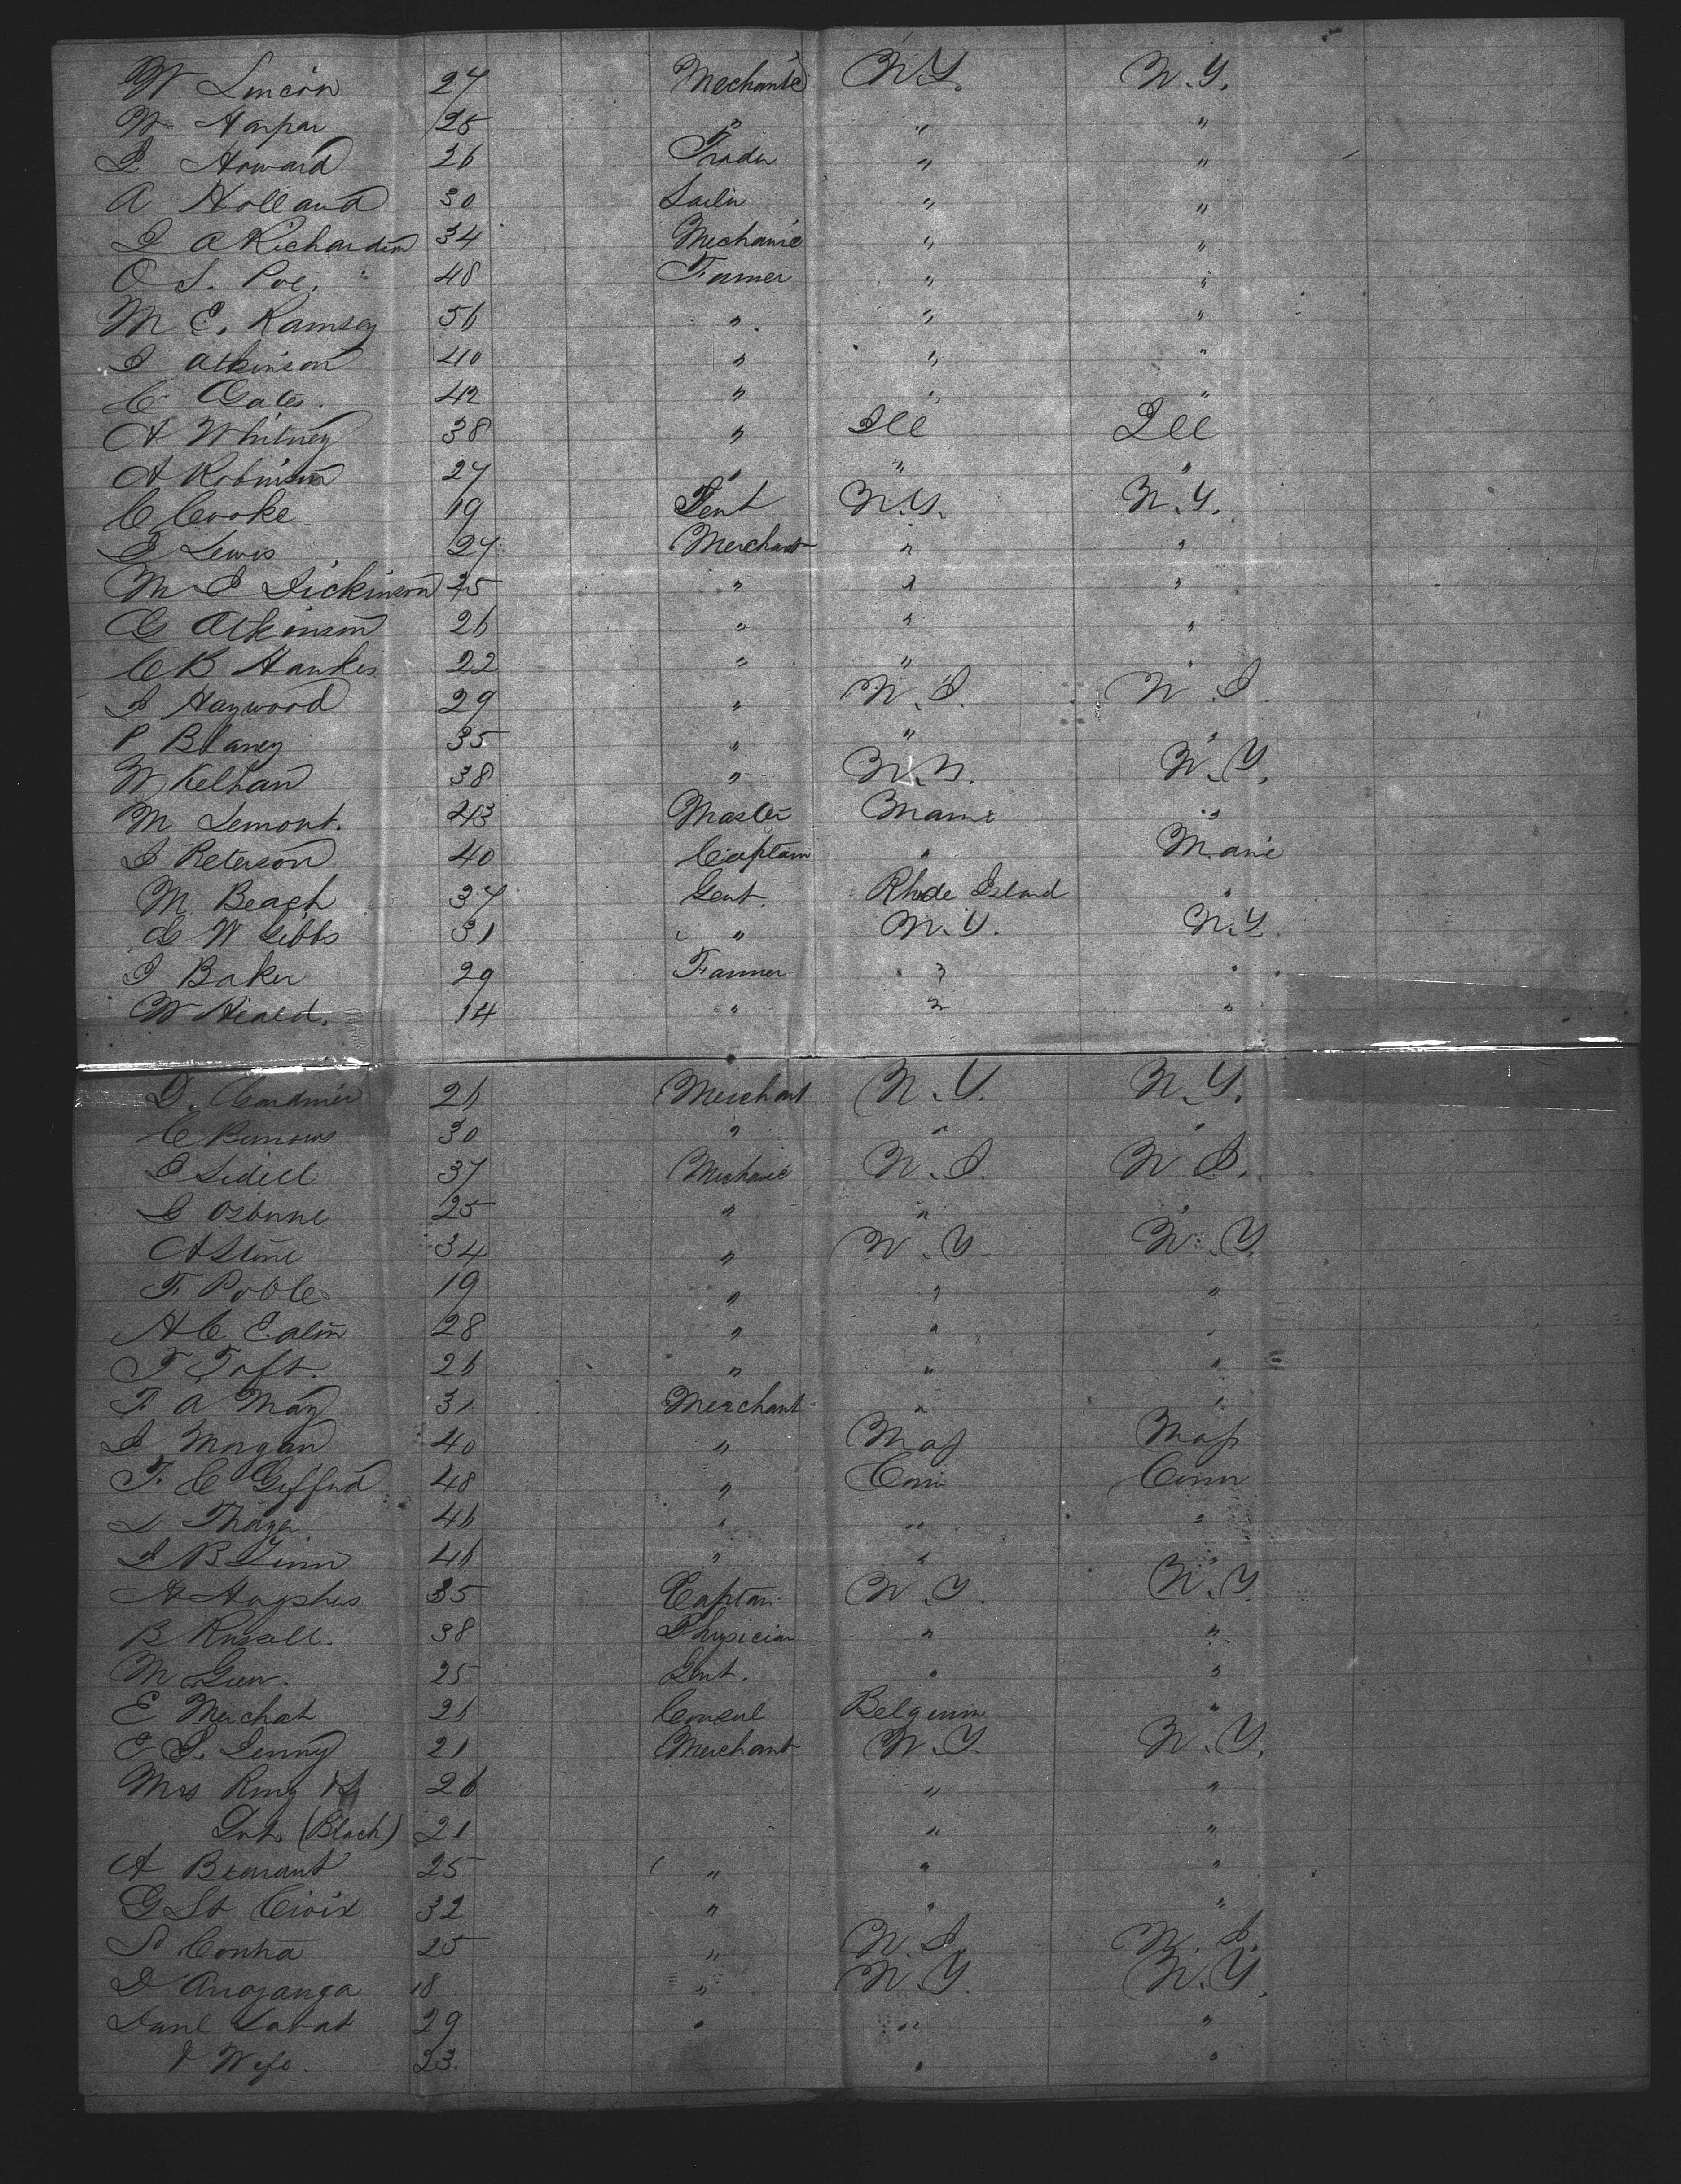 W Lincoln 27 Mechanic N.Y. N.Y.
W Harpar 25 " " "
J Howard 26 Trader " "
A Holland 30 Sailor " "
J A Richardson 34 Mechanic " "
O S. Poe. 48 Farmer " "
M E. Ramsey 56 " " "
J Atkinson 40 " " "
C Oates. 42 " " "
A Whitney 38 " Ill Ill
A Robinson 27 " " "
C Cooke 19 Gent N.Y. N.Y.
J Lewis 27 Merchant " "
M J Dickinson 45 " " "
G Atkinson 26 " " "
C B Hawkes 22 " " "
J Haywood 29 " N.J. N J
P Blaney 35 " " "
W Kelhan 38 " N.Y. N.Y.
M Lemont. 43 Master Maine "
J Peterson 40 Captain " Maine
M Beach 37 Gent. Rhode Island "
G W Gibbs 31 " N.Y. N.Y.
J Baker 29 Farmer " "
W Heald. 14 " " "
D. Gardner 26 Merchant N.Y. N.Y.
C Barrows 30 " " "
J Sidell 37 Mechanic N.J. N J.
G Osborne 25 " " "
A Stone 34 " N.Y N.Y.
F. Poble 19 " " "
A C Ealin 28 " " "
F Taft. 26 " " "
F. A May 31 Merchant " "
J Morgan 40 " Mass Mass
F. C Gifford 48 " Conn Conn
L Thayer 46 " " "
J B Finn 46 " " "
A 35 Captain N.Y. N.Y.
B Russell. 38 Physician " "
M Green. 25 Gent. " "
E Merchat 26 Consul Belguim "
E L. Denny 21 Merchant N.Y. N.Y.
Mrs Ring & 26 " "
(Black) 21 " "
A 25 " " "
G St Croix 32 " " "
25 " N.J. N.J.
D 18 " N.Y. N.Y.
29 " " "
& Wife. 23. " "